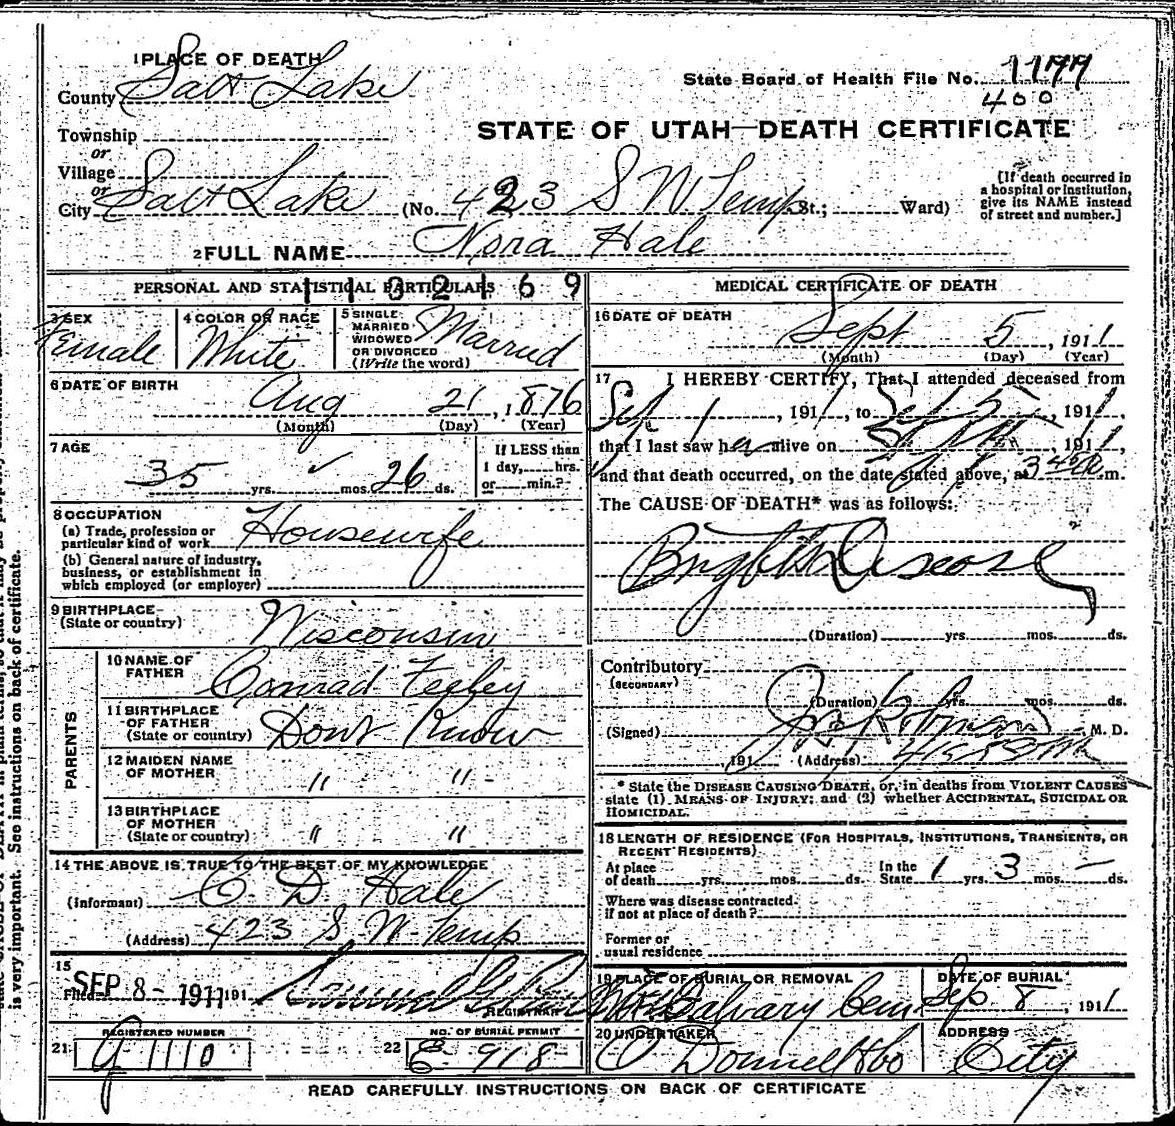 1 PLACE OF DEATH
County Salt Lake
State Board of Health File No. 1177
400
Township
or
STATE OF UTAH—DEATH CERTIFICATE
Village
or
City Salt Lake (No. 423 S W Temp St.; Ward)
[If death occurred in
a hospital or institution,
give its NAME instead
of street and number.]
2 FULL NAME Nora Hale
PERSONAL AND STATISTICAL PARTICULARS
1132169
3 SEX
Female
4 COLOR OR RACE
White
5 SINGLE
MARRIED
WIDOWED
OR DIVORCED
(Write the word)
Married
6 DATE OF BIRTH
Aug 21, 1876
(Month) (Day) (Year)
7 AGE
35 yrs. mos. 26 ds.
If LESS than
1 day, hrs.
or min.?
8 OCCUPATION
(a) Trade, profession or
particular kind of work Housewife
(b) General nature of industry,
business, or establishment in
which employed (or employer)
9 BIRTHPLACE
(State or country) Wisconsin
PARENTS
10 NAME OF
FATHER Conrad Feeley
11 BIRTHPLACE
OF FATHER
(State or country) Dont Know
12 MAIDEN NAME
OF MOTHER " "
13 BIRTHPLACE
OF MOTHER
(State or country) " "
14 THE ABOVE IS TRUE TO THE BEST OF MY KNOWLEDGE
(Informant) C D Hale
(Address) 423 S W Temp
15
Filed SEP 8 - 1911 191
REGISTRAR
REGISTERED NUMBER
21 G 1110
NO. OF BURIAL PERMIT
22 E 918
MEDICAL CERTIFICATE OF DEATH
16 DATE OF DEATH
Sept 5, 1911
(Month) (Day) (Year)
17 I HEREBY CERTIFY, That I attended deceased from
Sept 1, 1911, to Sept 5, 1911,
that I last saw her alive on 1911,
and that death occurred, on the date stated above, at 3 40 a m.
The CAUSE OF DEATH* was as follows:
Brights Disease
(Duration) yrs. mos. ds.
Contributory
(SECONDARY)
(Duration) yrs. mos. ds.
(Signed) M. D.
191 (Address)
* State the DISEASE CAUSING DEATH, or, in deaths from VIOLENT CAUSES
state (1) MEANS OF INJURY; and (2) whether ACCIDENTAL, SUICIDAL OR
HOMICIDAL.
18 LENGTH OF RESIDENCE (FOR HOSPITALS, INSTITUTIONS, TRANSIENTS, OR
RECENT RESIDENTS)
At place
of death yrs. mos. ds.
In the
State 1 yrs. 3 mos. — ds.
Where was disease contracted
if not at place of death?
Former or
usual residence
19 PLACE OF BURIAL OR REMOVAL
Mt Calvary Cem
DATE OF BURIAL
Sep 8, 1911
20 UNDERTAKER
O Donnell & Co
ADDRESS
City
READ CAREFULLY INSTRUCTIONS ON BACK OF CERTIFICATE
is very important. See instructions on back of certificate.